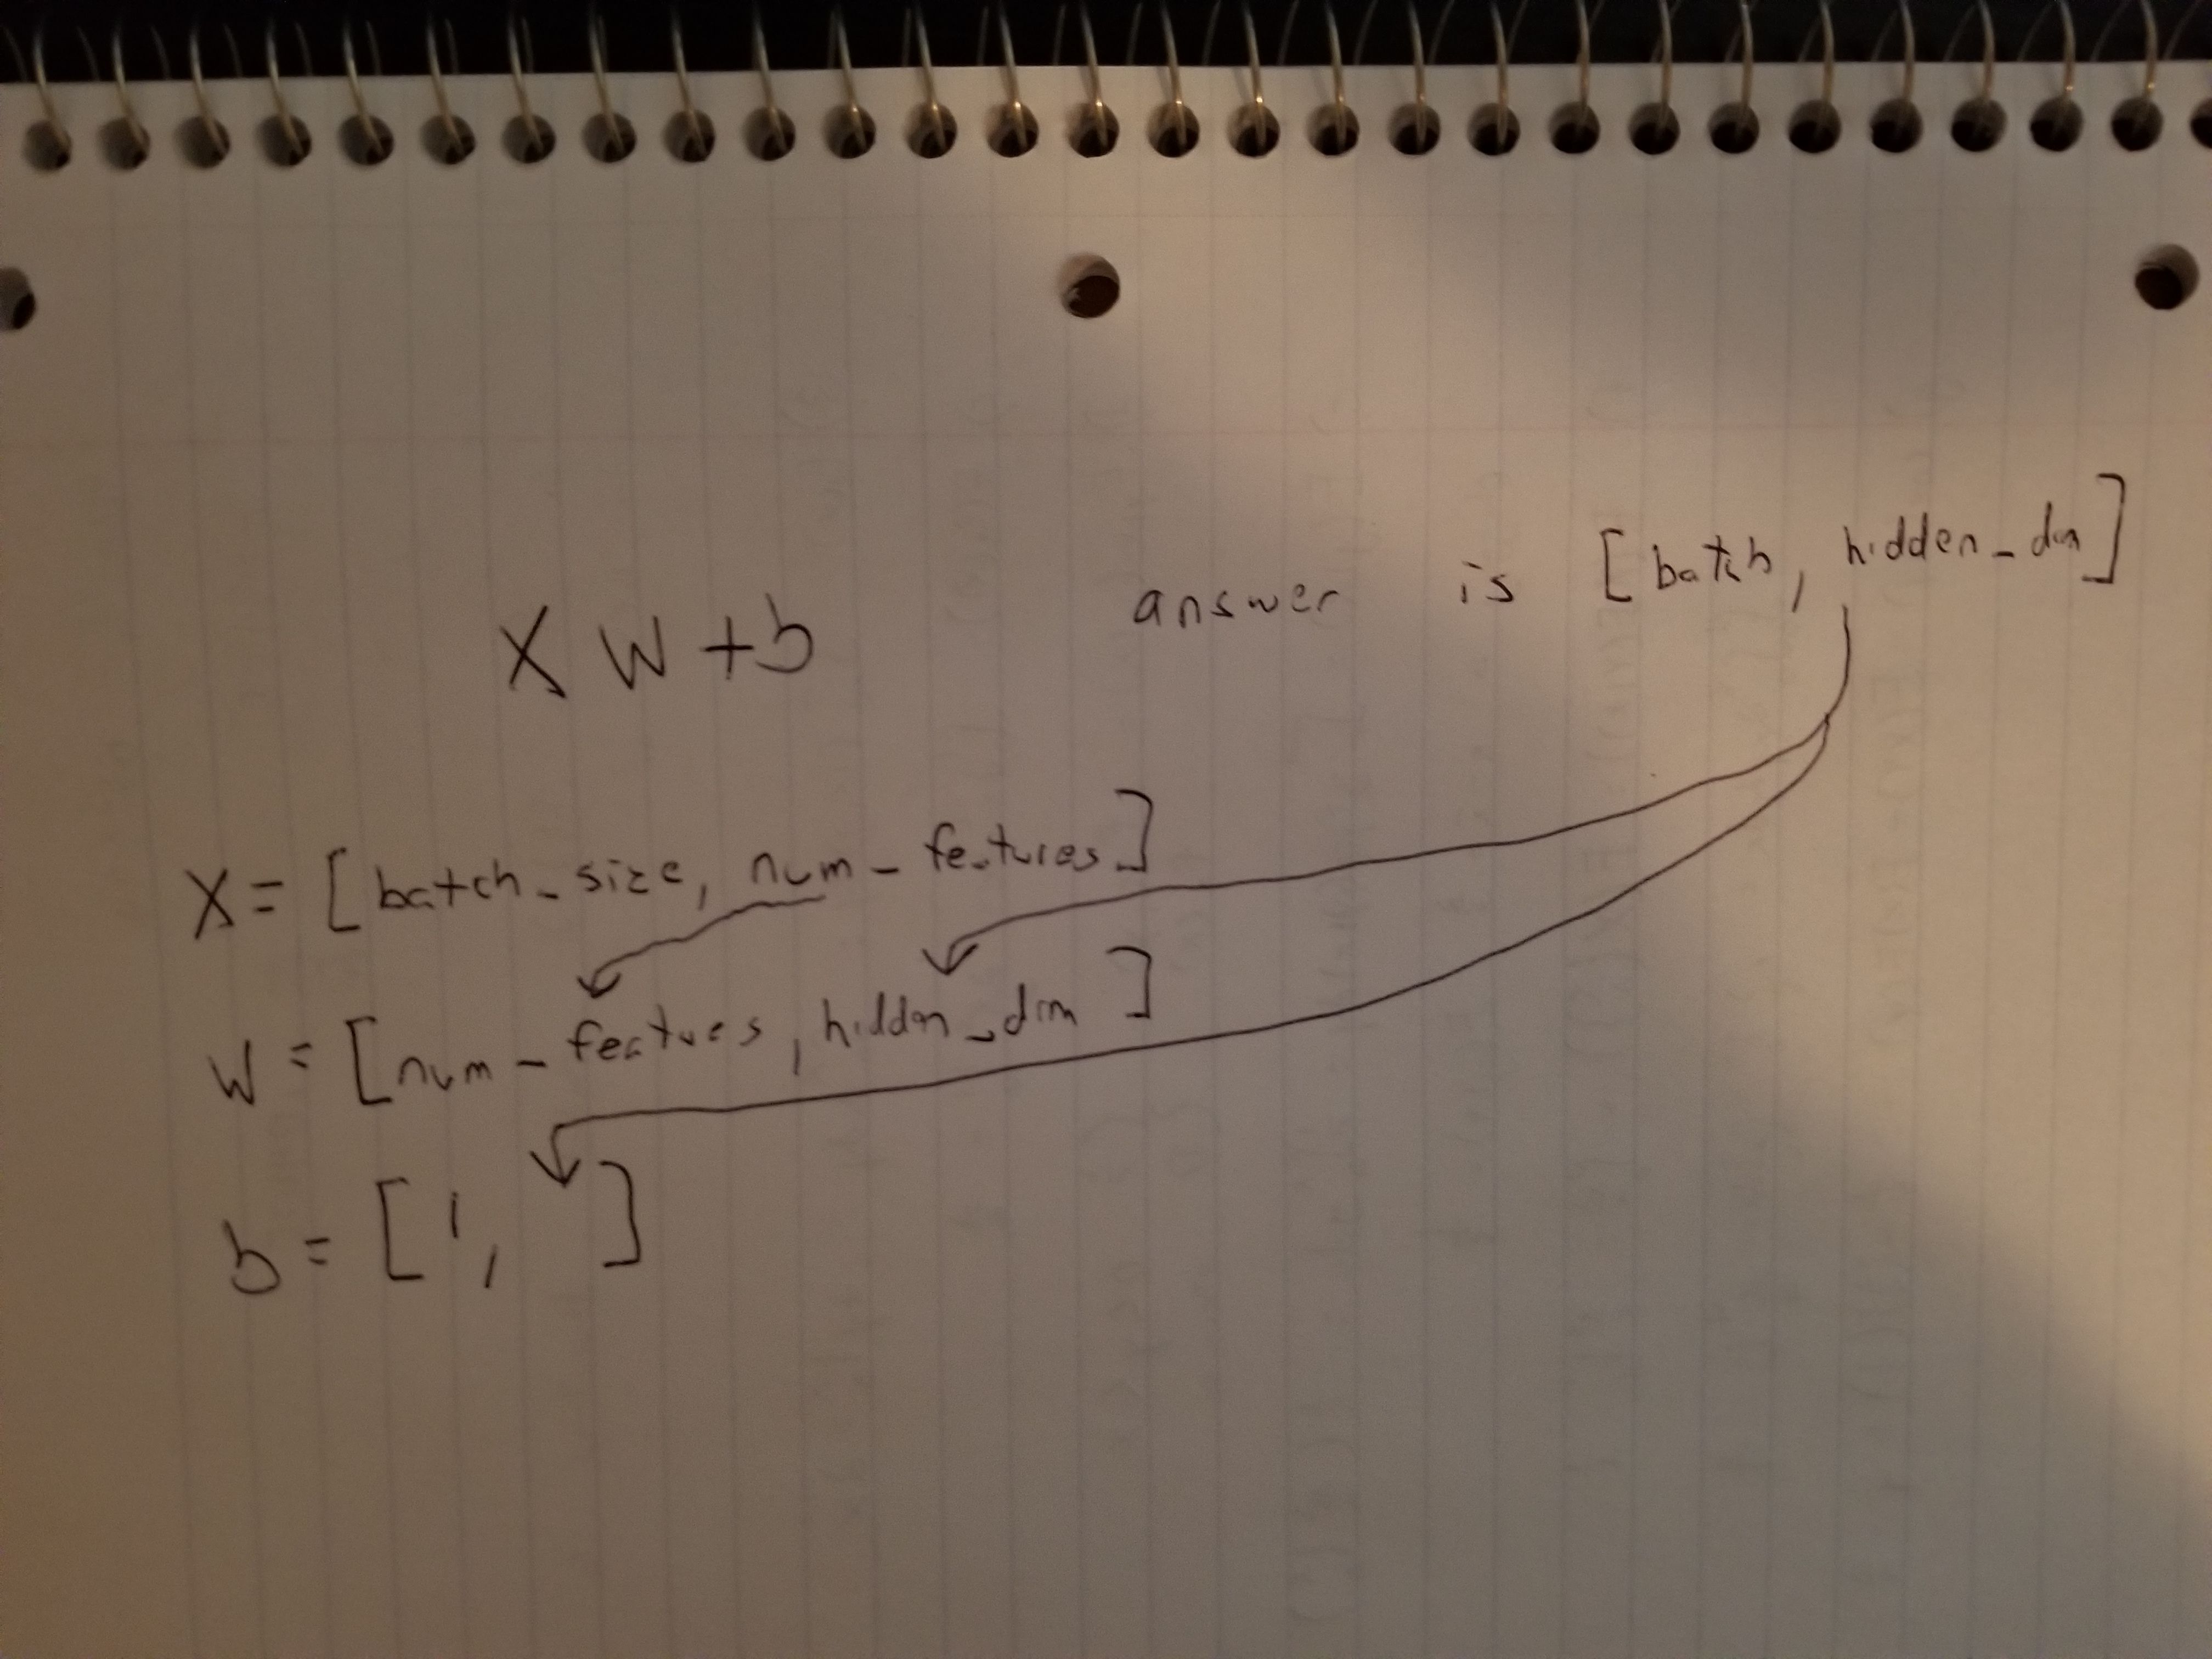 XW+b answer is [batch, hidden_dim]
X= [batch_size, num_features]
W = [num_features, hidden_dim]
b = [1, ]